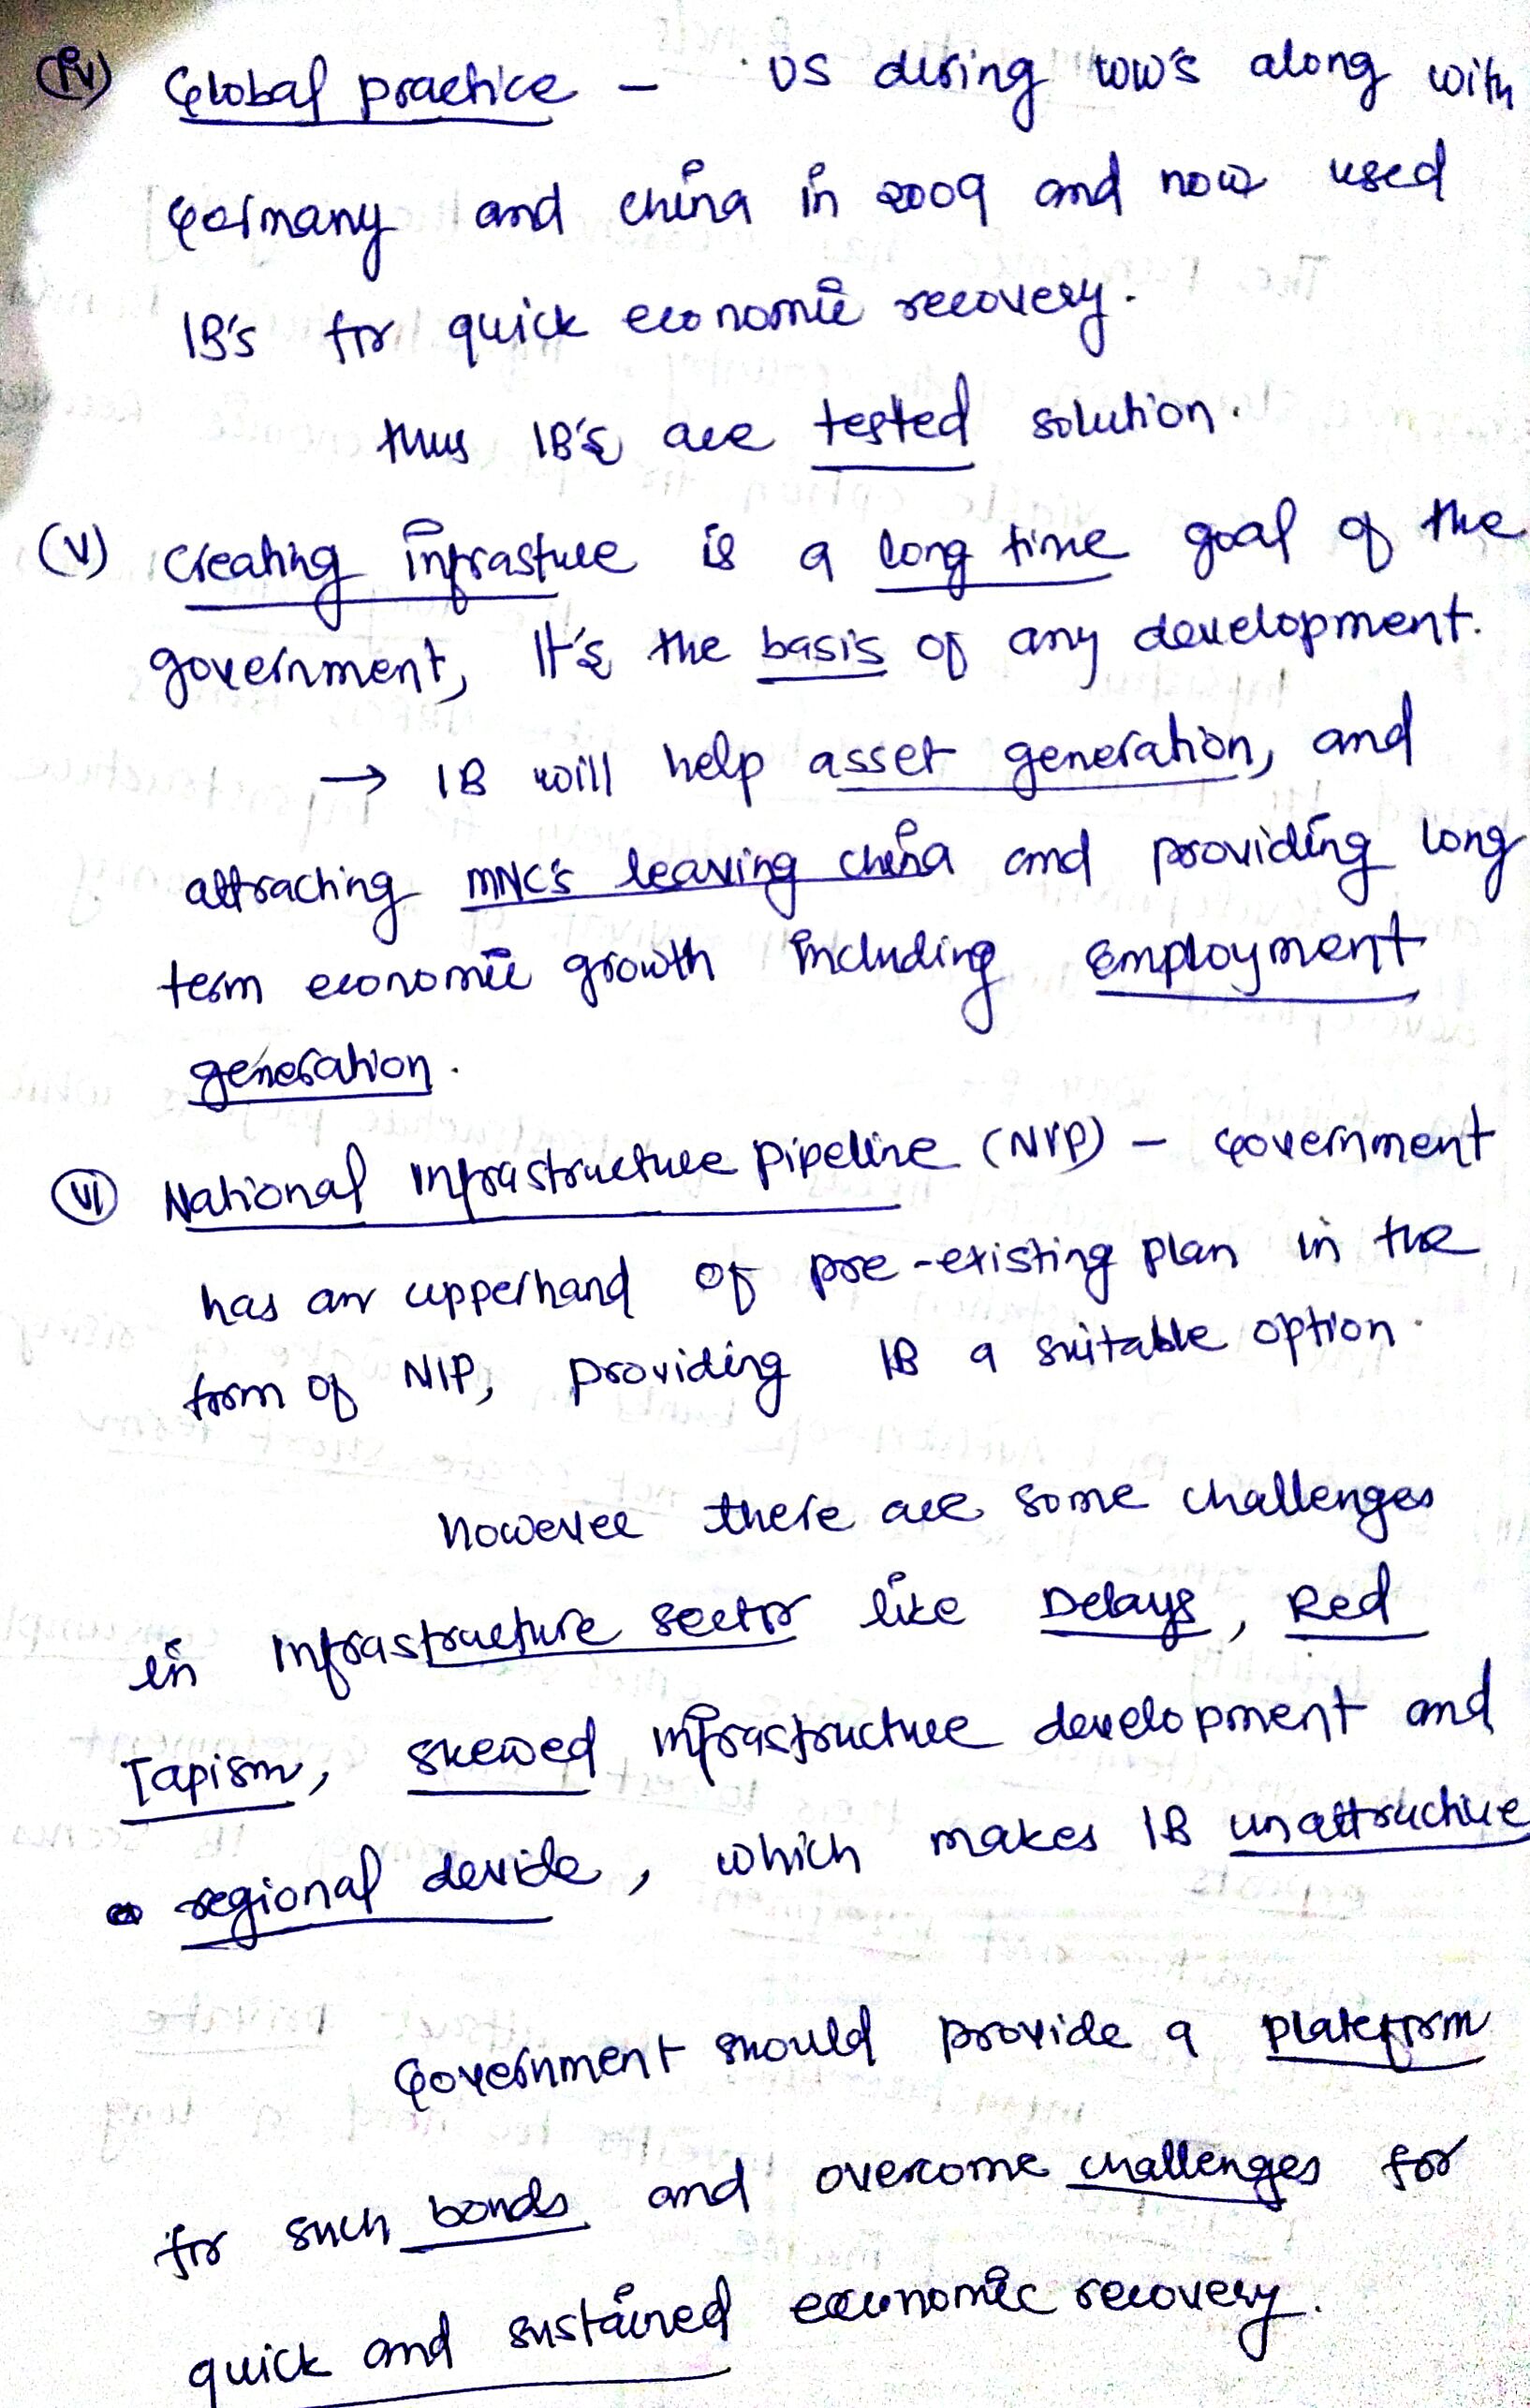 (iv) Global practice - US during WW's along with
Germany and China in 2009 and now used
IB's for quick economic recovery.
thus IB's are tested solution.
(v) Creating infrasture is a long time goal of the
government, It's the basis of any development.
→ IB will help asset generation, and
attracting MNC's leaving China and providing long
term economic growth including Employment
generation.
(vi) National Infrastructure pipeline (NIP) - Government
has an upperhand of pre-existing plan in the
form of NIP, providing IB a suitable option.
However there are some challenges
in Infrastructure sector like Delays, Red
Tapism, skewed infrastructure development and
regional devide, which makes IB unattractive
Government should provide a plateform
for such bonds and overcome challenges for
quick and sustained economic recovery.